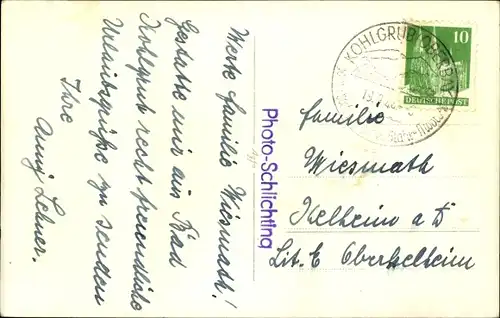 Werte Familie Wiesmath!
Gestatte mir aus Bad
Kohlgrub recht freundliche
Urlaubsgrüße zu senden
Ihre
Anny Lehner.
Photo-Schlichting
KOHLGRUB (OBERBAY)
10
DEUTSCHE POST
Familie
Wiesmath
Kelheim a/D
Lit. E Oberkelheim